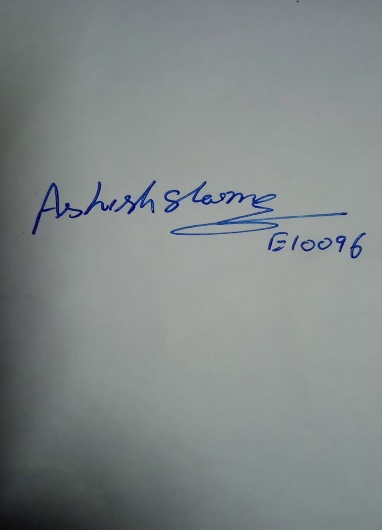 Ashish Sharma
E10096